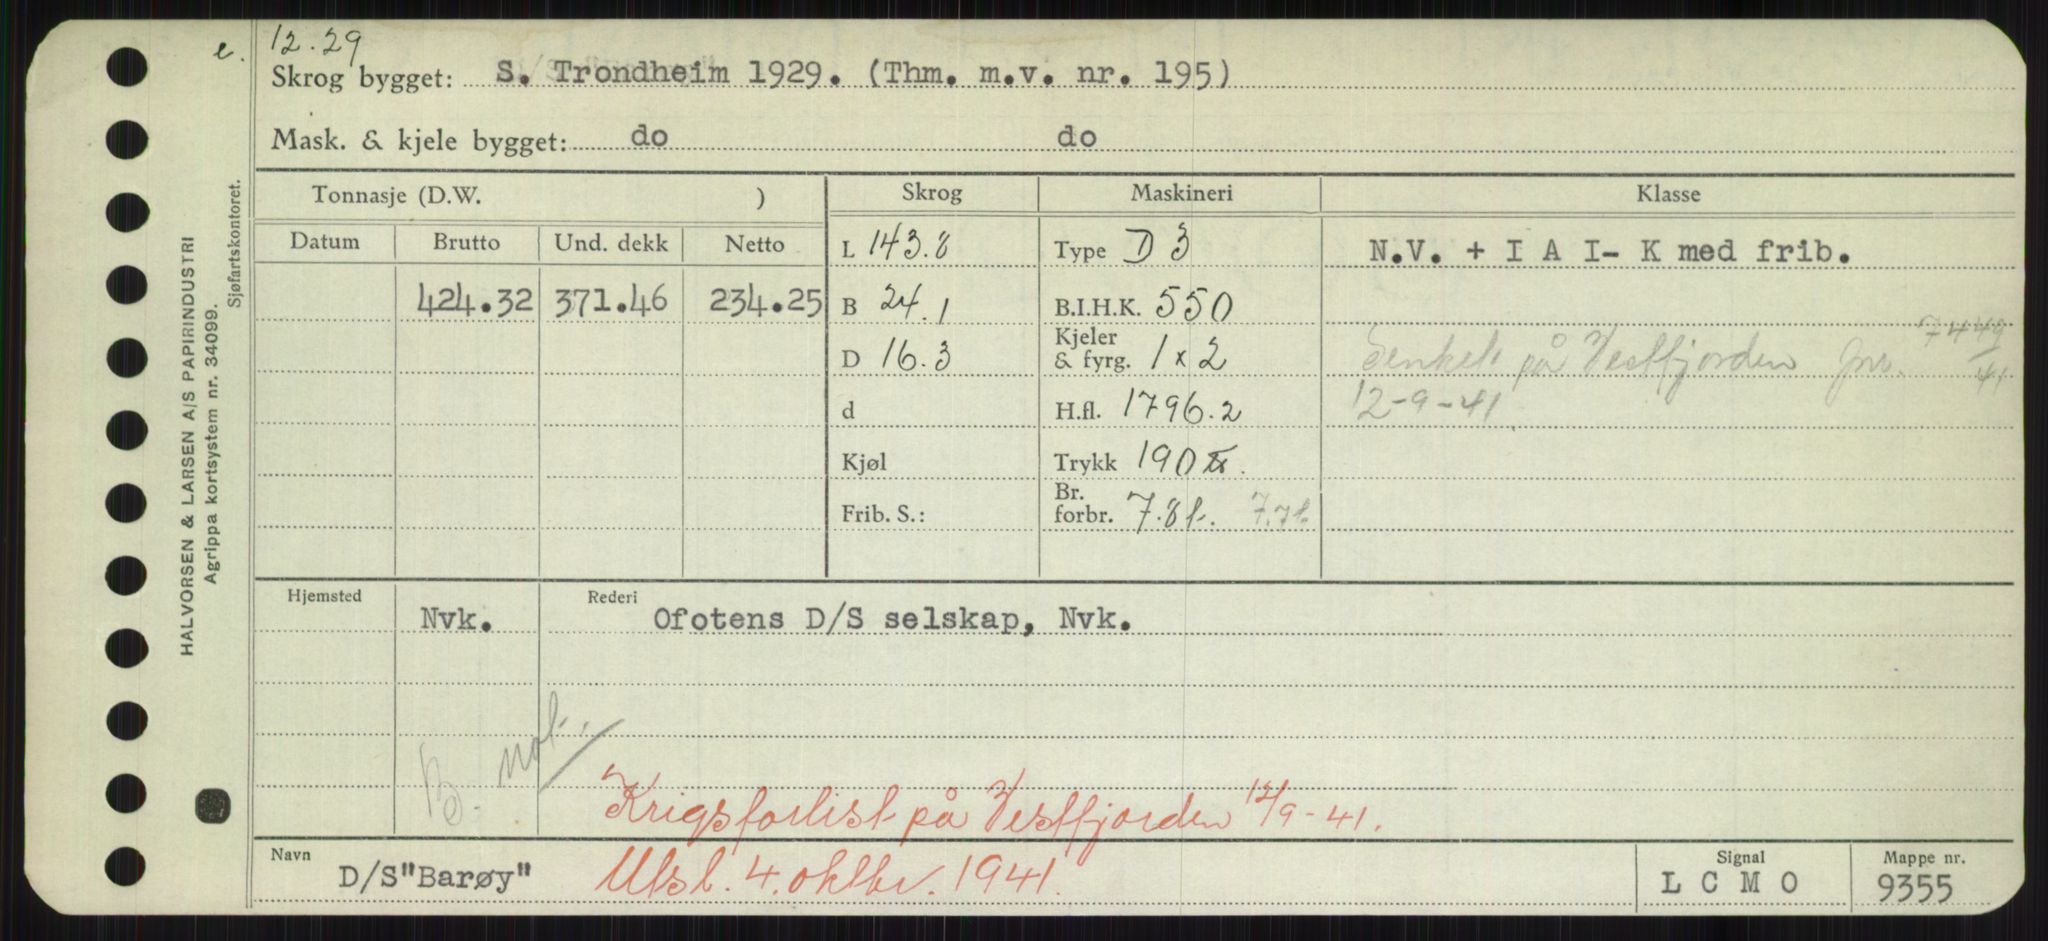 e. 12.29
Skrog bygget: S. Trondheim 1929. (Thm. m.v. nr. 195)
Mask. & kjele bygget: do do
Tonnasje (D.W. ) Skrog Maskineri Klasse
Datum Brutto Und. dekk Netto L 143.8 Type D 3 N.V. + I A I- K med frib.
424.32 371.46 234.25 B 24.1 B.I.H.K. 550
D 16.3 Kjeler & fyrg. 1 x 2 Senket på Vestfjorden jnr. 7449/41
d H.fl. 1796.2 12-9-41
Kjøl Trykk 190 lb.
Frib. S.: Br. forbr. 7.8 t. 7.7 t.
Hjemsted Nvk. Rederi Ofotens D/S selskap, Nvk.
B. not.
Krigsforlist på Vestfjorden 12/9-41.
Navn D/S"Barøy" Utsl. 4. oktbr. 1941. Signal L C M O Mappe nr. 9355
HALVORSEN & LARSEN A/S PAPIRINDUSTRI
Agrippa kortsystem nr. 34099.
Sjøfartskontoret.